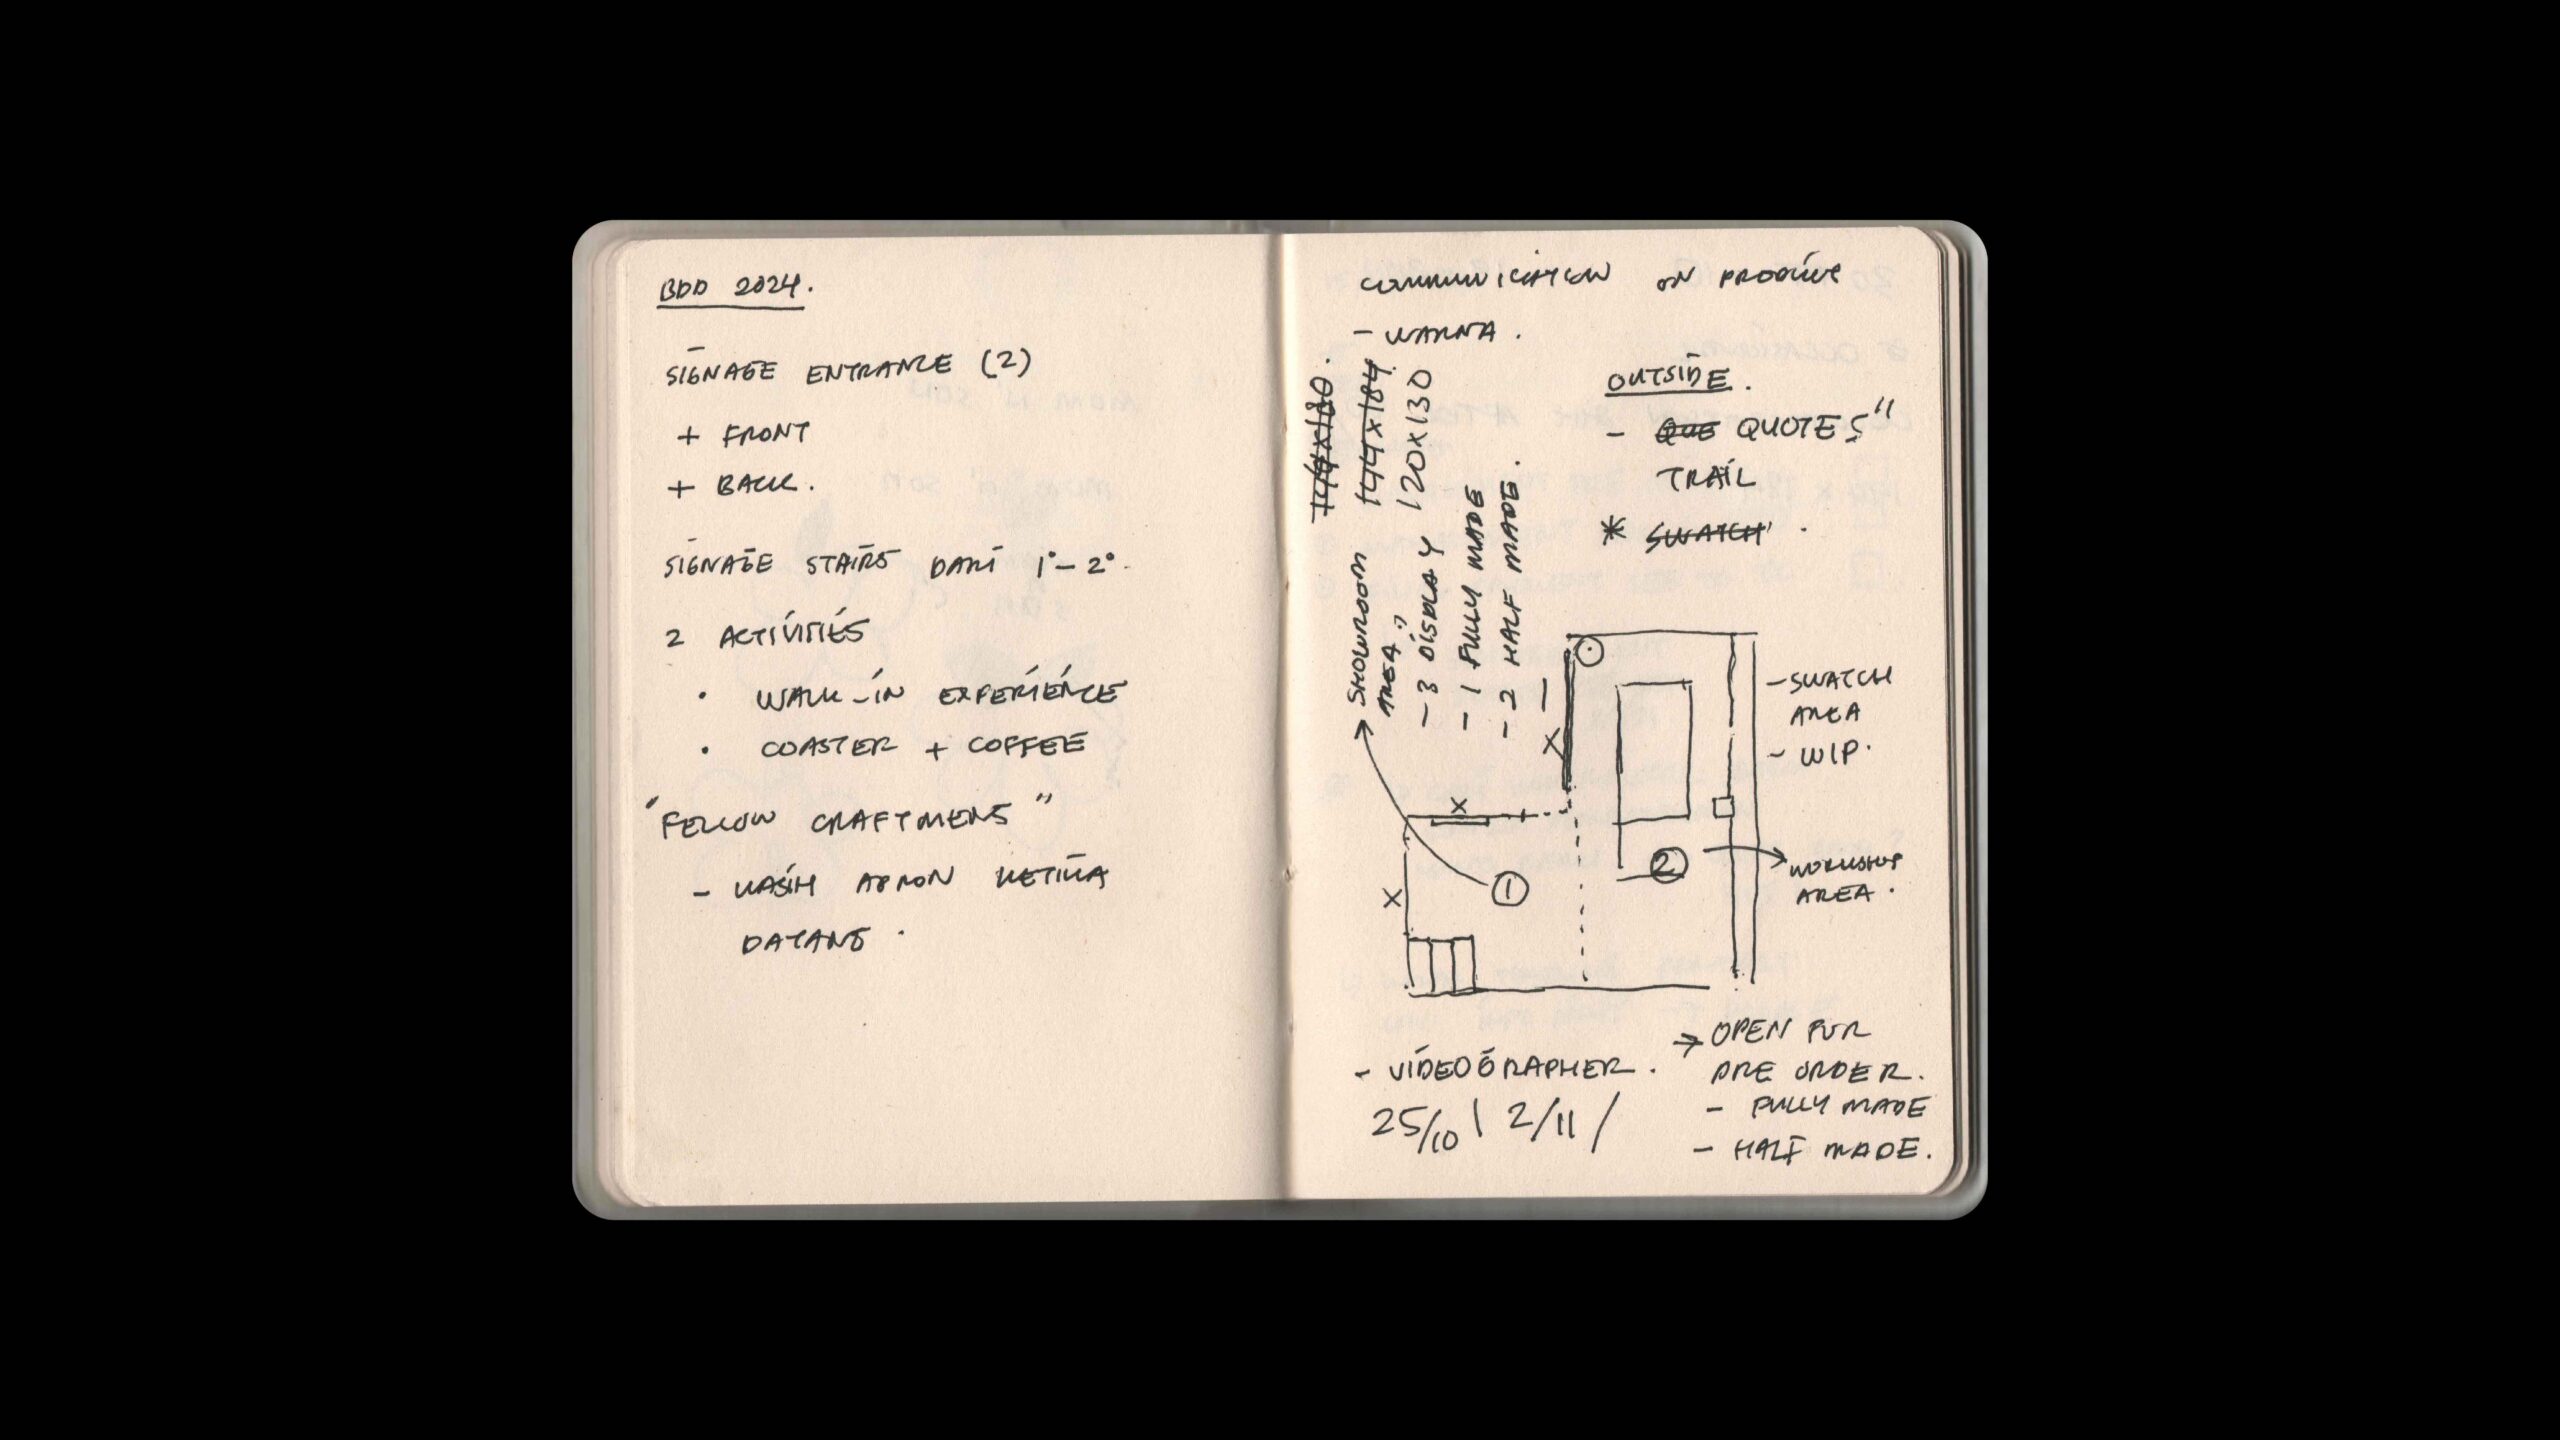 BDD 2024.
SIGNAGE ENTRANCE (2)
+ FRONT
+ BACK.
SIGNAGE STAIRS DARI 1°-2°.
2 ACTIVITIES
• WALK-IN EXPERIENCE
• COASTER + COFFEE
"FELLOW CRAFTMENS"
- KASIH APRON KETIKA
DATANG.
COMMUNICATION ON PRODUCT
- WARNA.
144x180.
SHOWROOM 144x184
AREA"
- 3 DISPLAY 120x130
- 1 FULLY MADE
- 2 HALF MADE.
OUTSIDE.
- QUE QUOTES"
TRAIL
* SWATCH.
- SWATCH
AREA
- WIP.
X
X
X
1
2
WORKSHOP
AREA.
- VIDEOGRAPHER.
25/10 | 2/11 /
→ OPEN FOR
PRE ORDER.
- FULLY MADE
- HALF MADE.